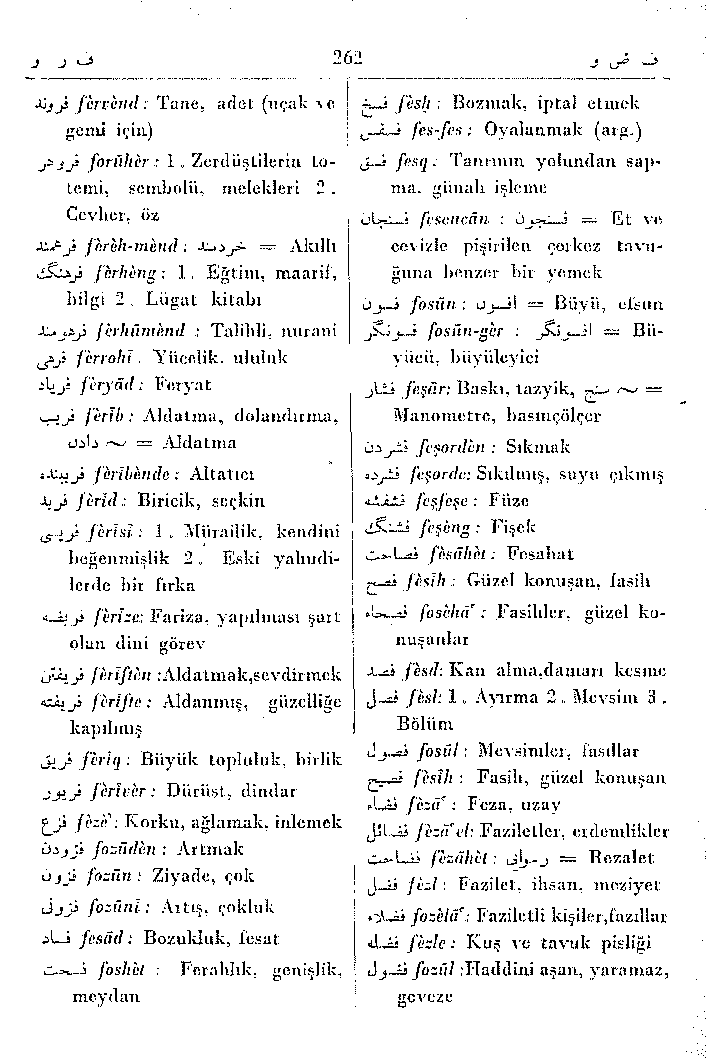 ف ر و 262 ف ض و
فروند ferrend : Tane, adet (uçak ve
gemi için)
فروهر foruher : 1. Zerdüştilerin to-
temi, sembolü, melekleri 2.
Cevher, öz
فرهمند fereh-mend : خردمند = Akıllı
فرهنگ ferheng : 1. Eğtim, maarif,
bilgi 2. Lügat kitabı
فرهومند ferhumend : Talihli, nurani
فرهی ferrohī . Yücelik, ululuk
فریاد feryād : Feryat
فریب ferīb : Aldatma, dolandırma,
دادن ~ = Aldatma
فریبنده ferībende : Altatıcı
فرید ferīd : Biricik, seçkin
فریسی ferīsī : 1. Mürailik, kendini
beğenmişlik 2. Eski yahudi-
lerde bir fırka
فریضه ferīze: Fariza, yapılması şart
olan dini görev
فریفتن ferīften :Aldatmak,sevdirmek
فریفته ferīfte : Aldanmış, güzelliğe
kapılmış
فریق ferīq : Büyük topluluk, birlik
فریور ferīver : Dürüst, dindar
فزع feze' : Korku, ağlamak, inlemek
فزودن fozūden : Artmak
فزون fozūn : Ziyade, çok
فزونی fozūnī : Artış, çokluk
فساد fesād : Bozukluk, fesat
فسحت foshet : Ferahlık, genişlik,
meydan
فسخ fesh : Bozmak, iptal etmek
فسفس fes-fes : Oyalanmak (arg.)
فسق fesq : Tanrının yolundan sap-
ma, günah işleme
فسنجان fesencān : فسنجون = Et ve
cevizle pişirilen çerkez tavu-
ğuna benzer bir yemek
فسون fosūn : افسون = Büyü, efsun
فسونگر fosūn-ger : افسونگر = Bü-
yücü, büyüleyici
فشار feşār: Baskı, tazyik, ~ سنج =
Manometre, basınçölçer
فشردن feşorden : Sıkmak
فشرده feşorde: Sıkılmış, suyu çıkmış
فشفشه feşfeşe : Füze
فشنگ feşeng : Fişek
فصاحت fesāhet : Fesahat
فصیح fesīh : Güzel konuşan, fasih
فصحاء foseha' : Fasihler, güzel ko-
nuşanlar
فصد fesd: Kan alma,damarı kesme
فصل fesl: 1. Ayırma 2. Mevsim 3.
Bölüm
فصول fosūl : Mevsimler, fasıllar
فصیح fesīh : Fasih, güzel konuşan
فضاء fezā' : Feza, uzay
فضائل fezā'el: Faziletler, erdemlikler
فضاحت fezāhet : رسوائی = Rezalet
فضل fezl : Fazilet, ihsan, meziyet
فضلاء fozelā' : Faziletli kişiler,fazıllar
فضله fezle : Kuş ve tavuk pisliği
فضول fozūl :Haddini aşan, yaramaz,
geveze